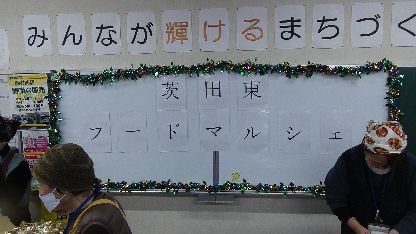 みんなが輝けるまちづく
茨田東
フードマルシェ